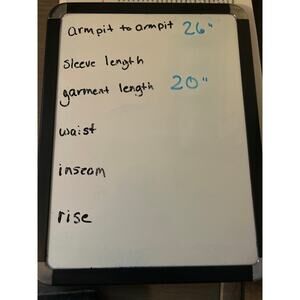 armpit to armpit 26"
sleeve length
garment length 20"
waist
inseam
rise